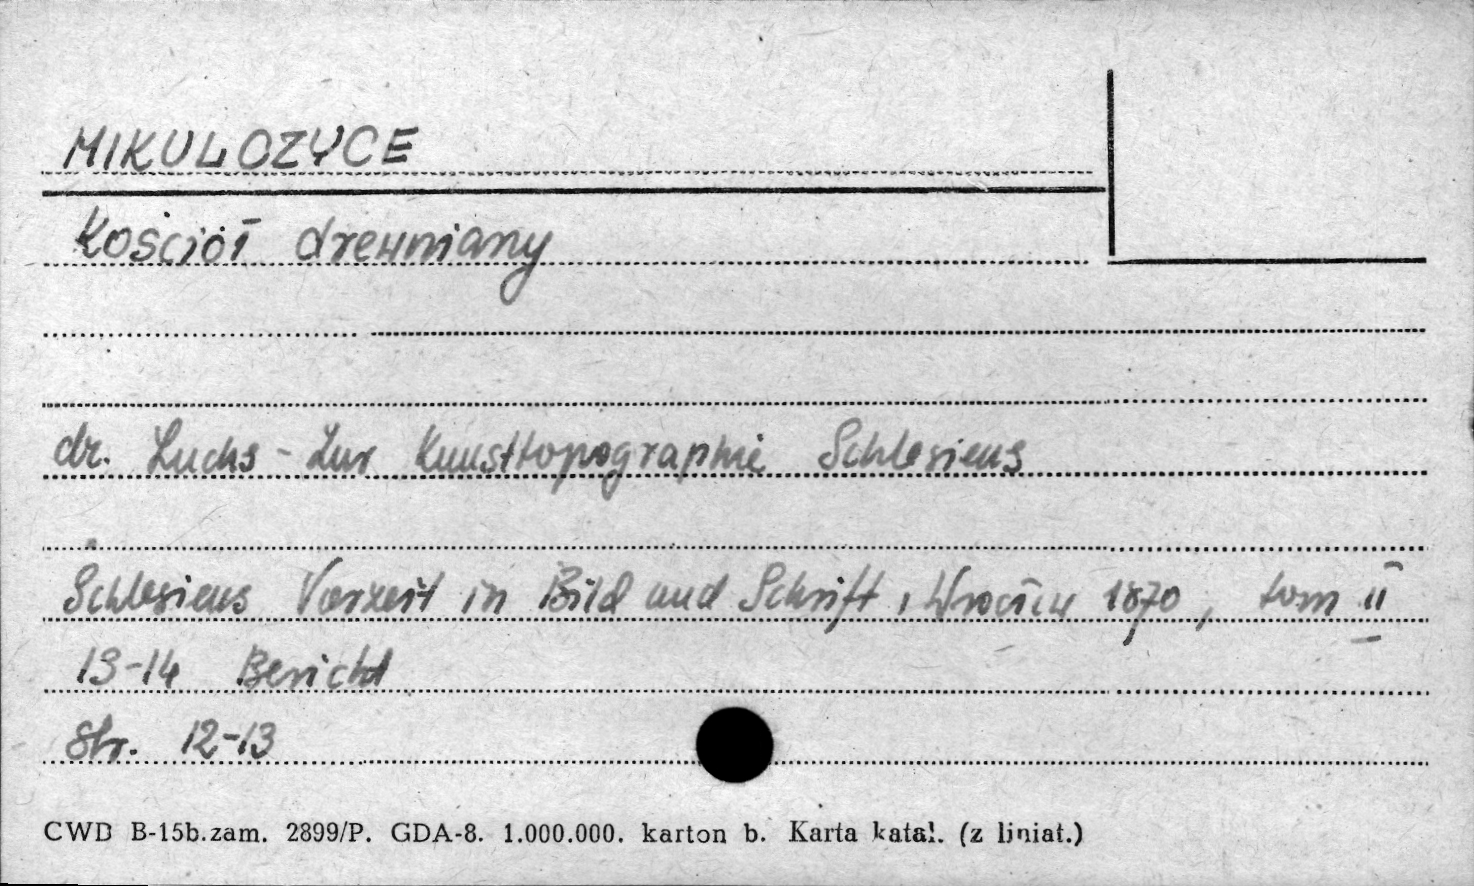 MIKULOZYCE
Kościół drewniany
dr. Luchs - Zur Kunsttopographie Schlesiens
Schlesiens Vorzeit in Bild und Schrift, Wrocław 1870, tom II
13-14 Bericht
str. 12-13
CWD B-15b.zam. 2899/P. GDA-8. 1.000.000. karton b. Karta katal. (z liniat.)